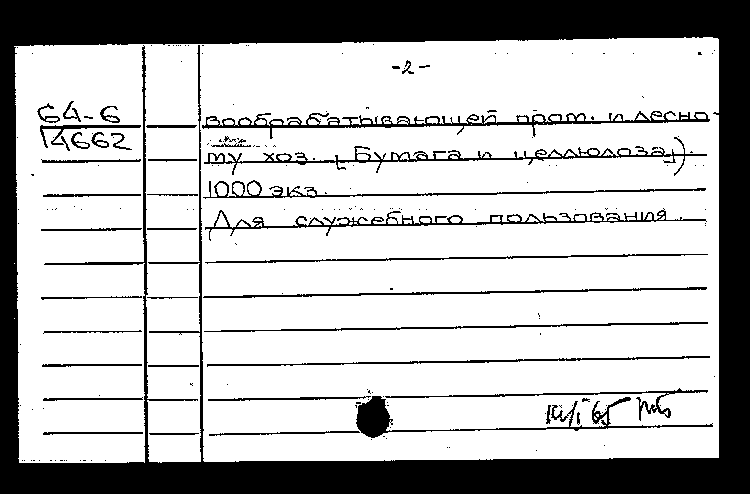 -2-
64-6
14662
вообрабатывающей пром. и лесно-
му хоз. [Бумага и целлюлоза]).
1000 экз.
Для служебного пользования.
65